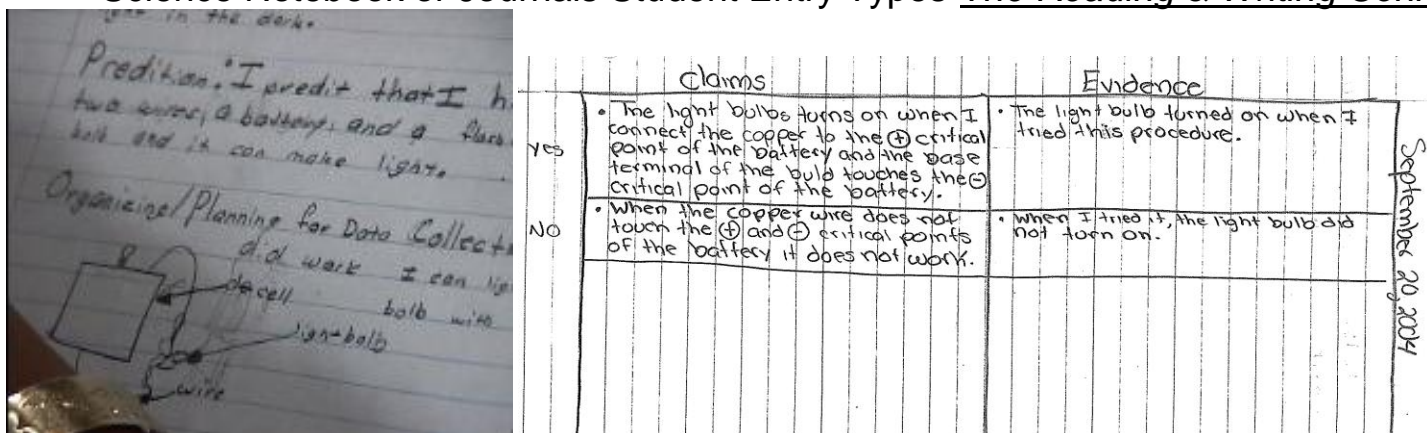 Science Notebook or Journals Student Entry Types The Reading & Writing
in the dark.
Predition: I predit that I
two wires, a battery, and a
bolb and it can make light.
Organizing/Planning for Data
did work I can
dcell
bolb with
lightbolb
wire
Claims
Evidence
Yes
• The light bulbs turns on when I
connect the copper to the ⊕ critical
point of the battery and the base
terminal of the bulb touches the ⊖
critical point of the battery.
• The light bulb turned on when I
tried this procedure.
NO
• When the copper wire does not
touch the ⊕ and ⊖ critical points
of the battery it does not work.
• When I tried it, the light bulb did
not turn on.
September 20, 2004